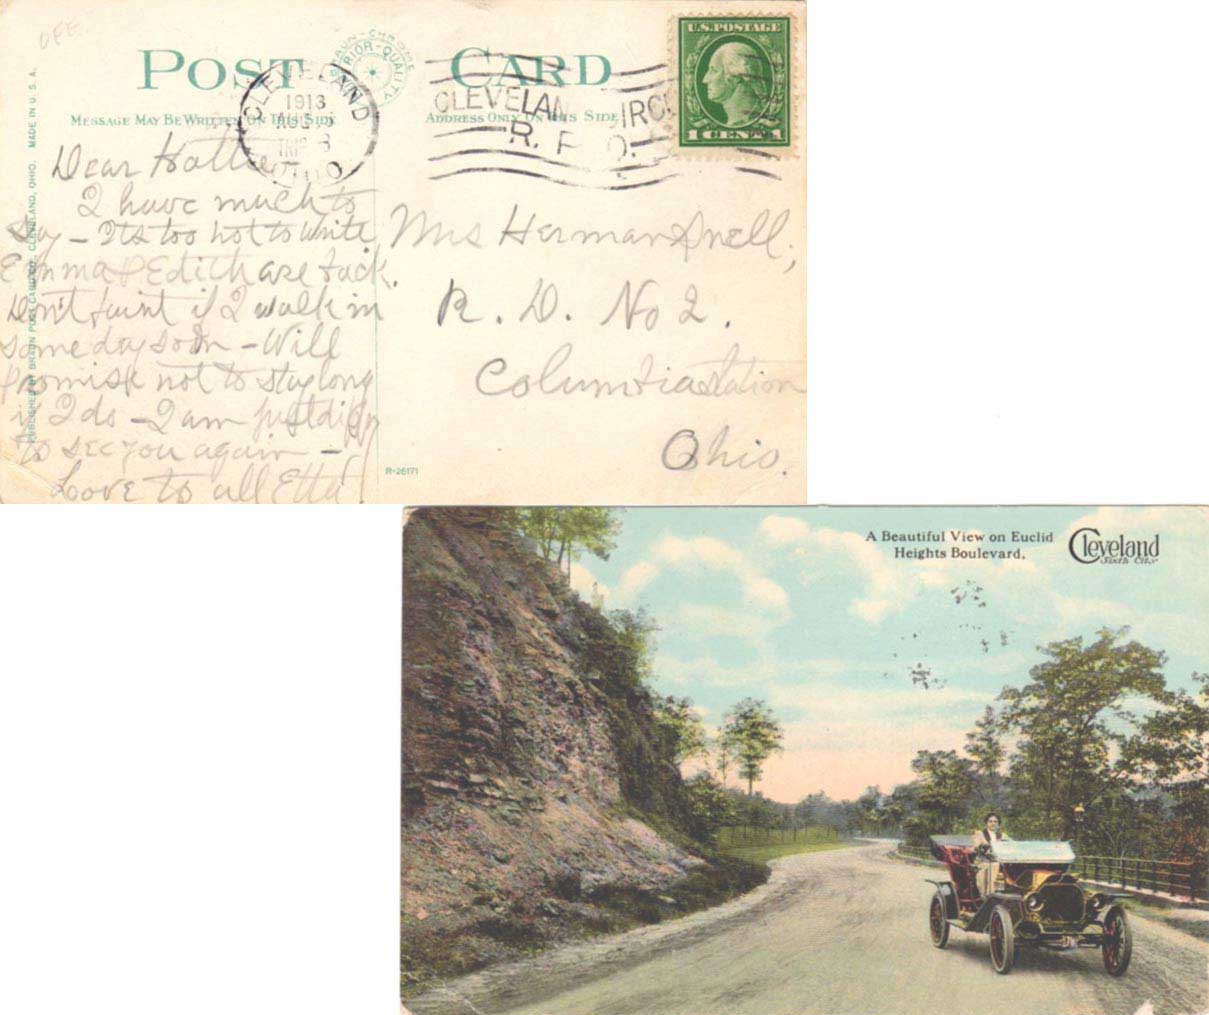 POST CARD
BRAUN-CHROME
SUPERIOR-QUALITY
U.S. POSTAGE
1 CENT 1
MESSAGE MAY BE WRITTEN ON THIS SIDE
ADDRESS ONLY ON THIS SIDE
CLEVELAND
1913
AUG
TRIP 3
CLEVELAN CIRC
R. P. O.
MADE IN U. S. A.
PUBLISHED BY BRAUN POST CARD CO. CLEVELAND, OHIO.
Dear Hattie
I have much to
Say - Its too hot to write
Emma & Edith are back.
Don't faint if I walk in
some day soon - Will
Promise not to stay long
if I do - I am just
to see you again -
Love to all Etta
Mrs Herman Snell,
R. D. No 2.
Columbia Station
Ohio.
R-26171
A Beautiful View on Euclid
Heights Boulevard.
Cleveland
Sixth City